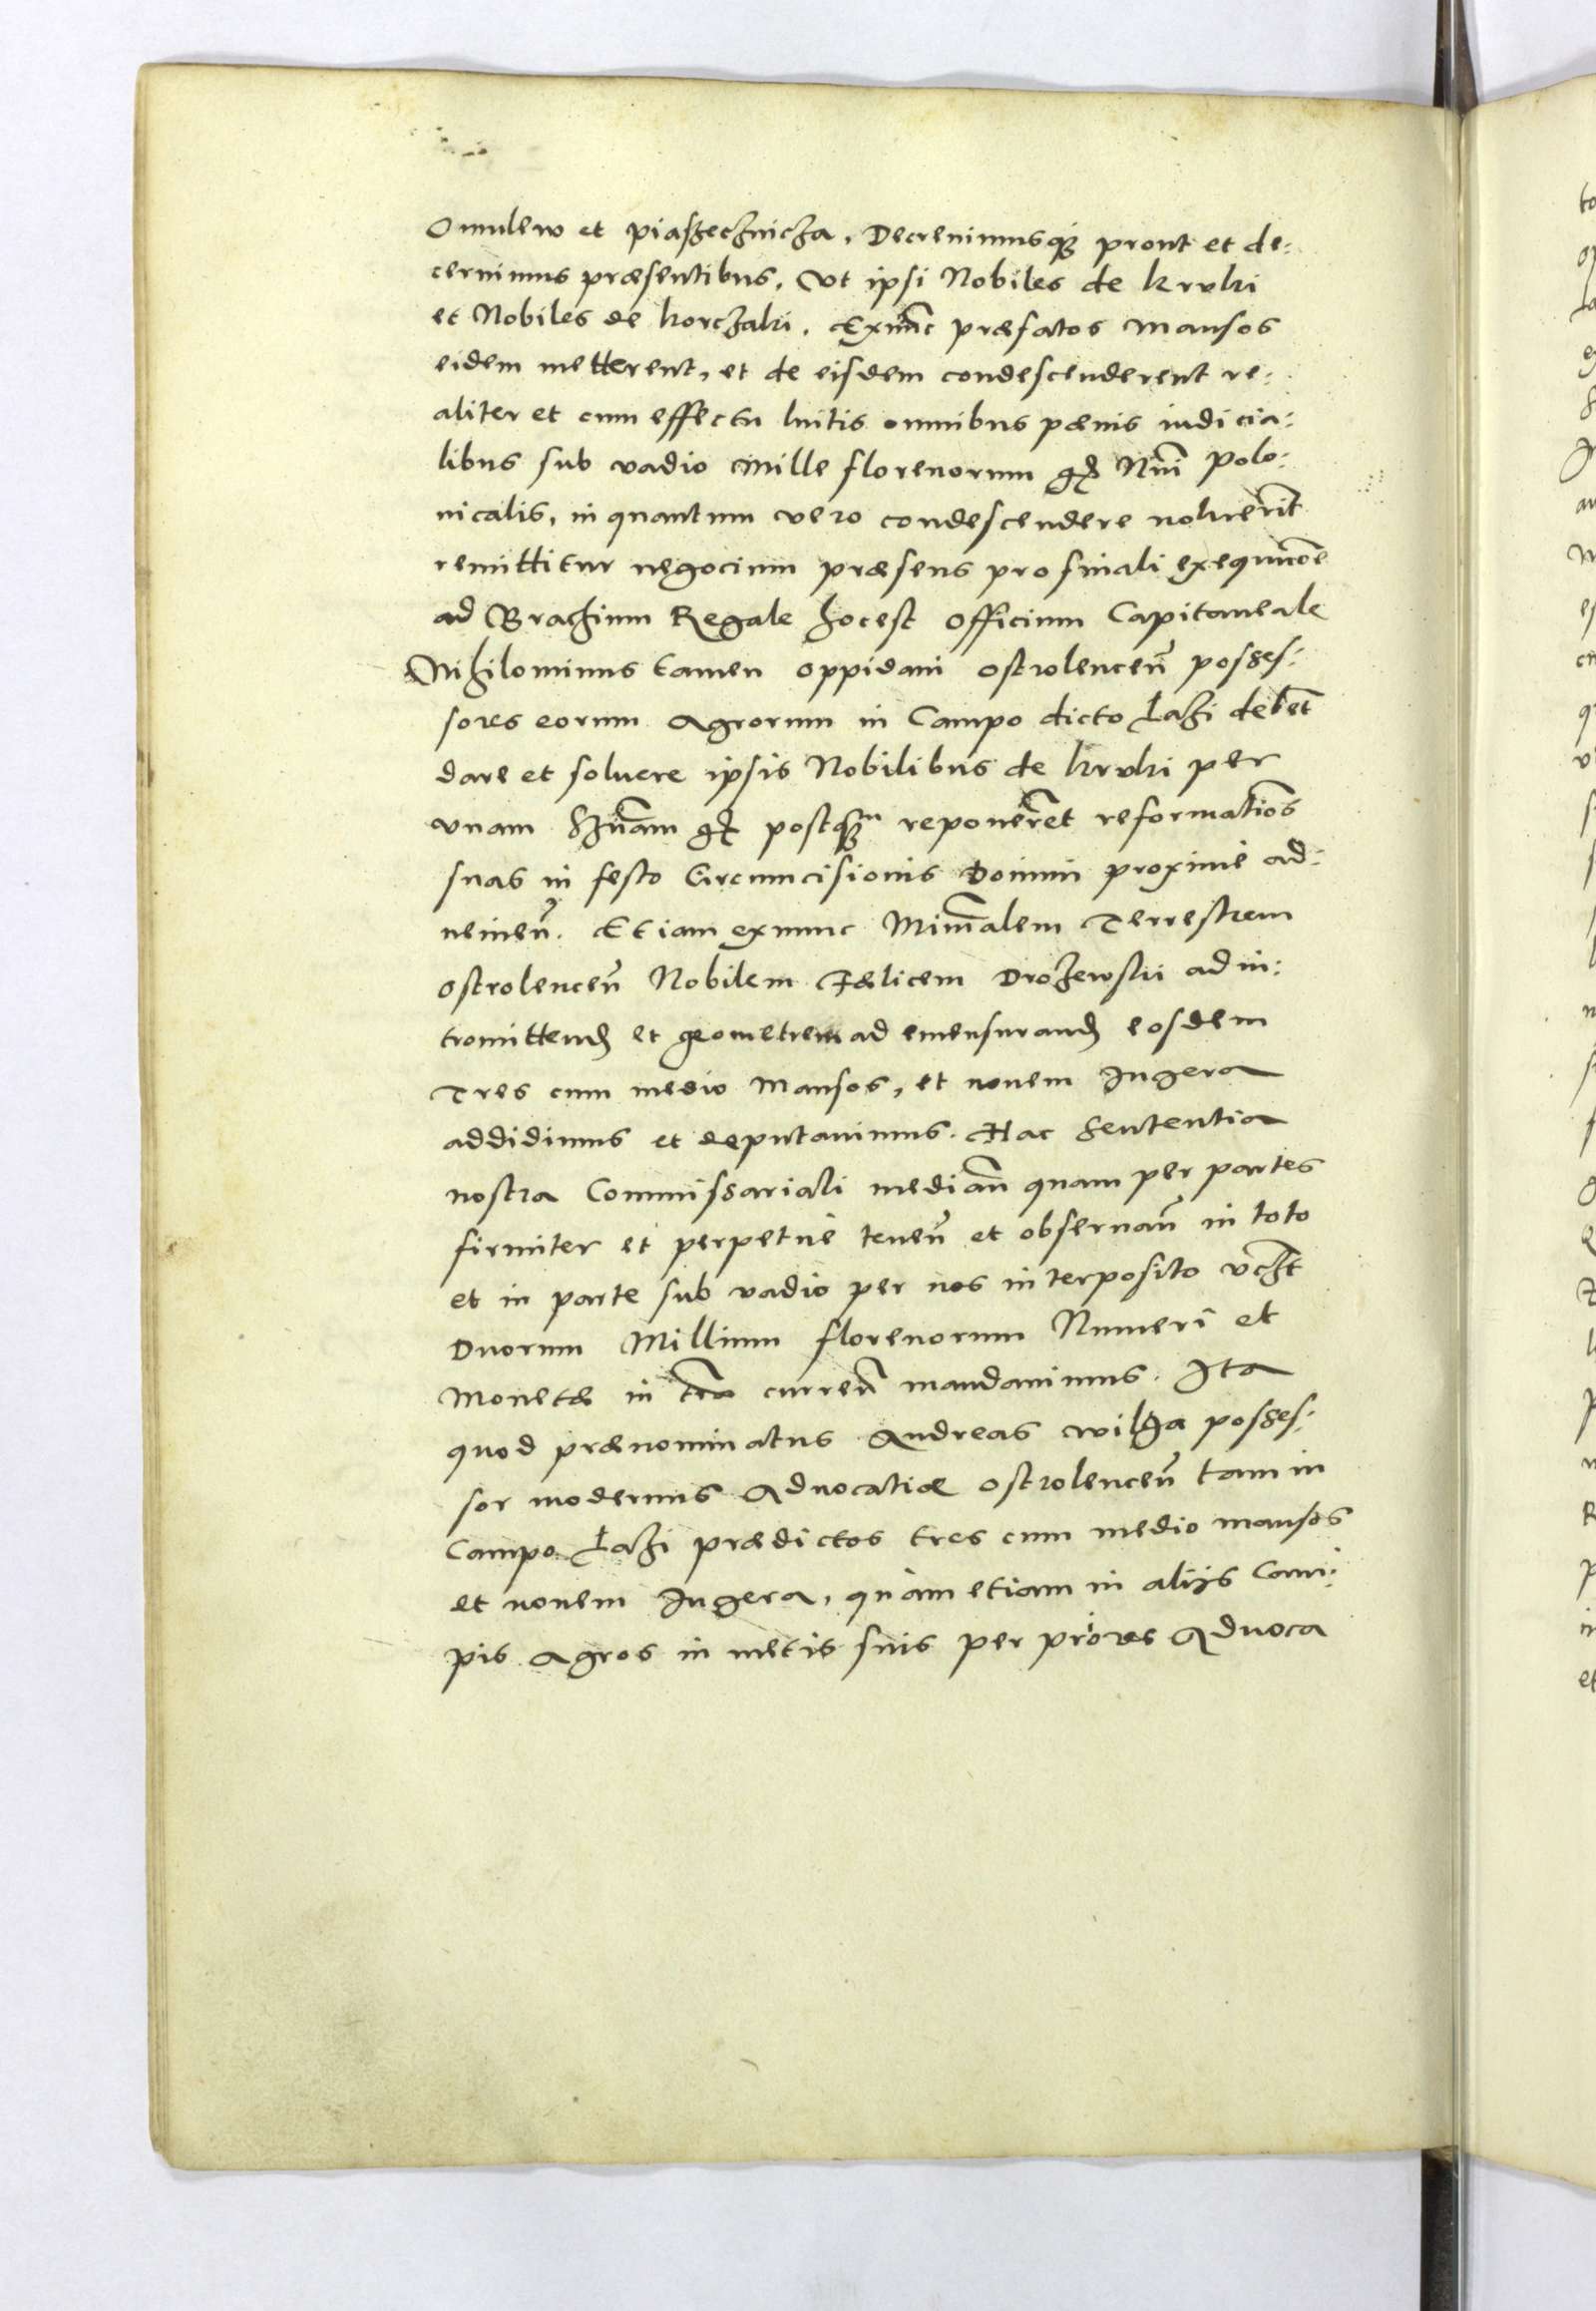 Omulew et piaszecznicza. Decreuimusq; prout et de:
cernimus præsentibus. Vt ipsi Nobiles de kruki
et Nobiles de korczaki. Exnūc præfatos mansos
eidem metterent, et de eisdem condescenderent re:
aliter et cum effectu luitis omnibus pænis iudicia:
libus sub vadio mille florenorum Nūi polo:
nicalis, in quantum vero condescendere noluerīt
remittitur negocium præsens pro finali exequucōe
ad Brachium Regale hocest officium Capitaneale
Nihilominus tamen oppidani ostrolenceñ posses:
sores eorum Agrorum in Campo dicto Łazi debēt
dare et soluere ipsis Nobilibus de kruki per
vnam postq̃m reponerēt reformatiōs
suas in festo Circumcisionis Domini proxime ad:
ueineñ. Etiam exnunc Minrālem Terrestrem
ostrolenceñ Nobilem Fælicem Drozewski ad in:
tromittend et geometrem ad emensurand eosdem
Tres cum medio Mansos, et nouem Jugera
addidimus et deputauimus. Hac Sententia
nostra Commissariali median̄ quam per partes
firmiter et perpetuè teneñ et obseruañ in toto
et in parte sub vadio per nos interposito vczt
Duorum Millium florenorum Numeri et
Monetæ in t̄ra curreñ mandauimus. Ita
quod prænominatus Andreas wilga posses:
sor modernus Aduocatiæ ostrolenceñ tam in
Campo Łazi prædictos tres cum medio mansos
et nouem Jugera, quàm etiam in alijs Cam:
pis Agros in metis suis per priores Aduoca